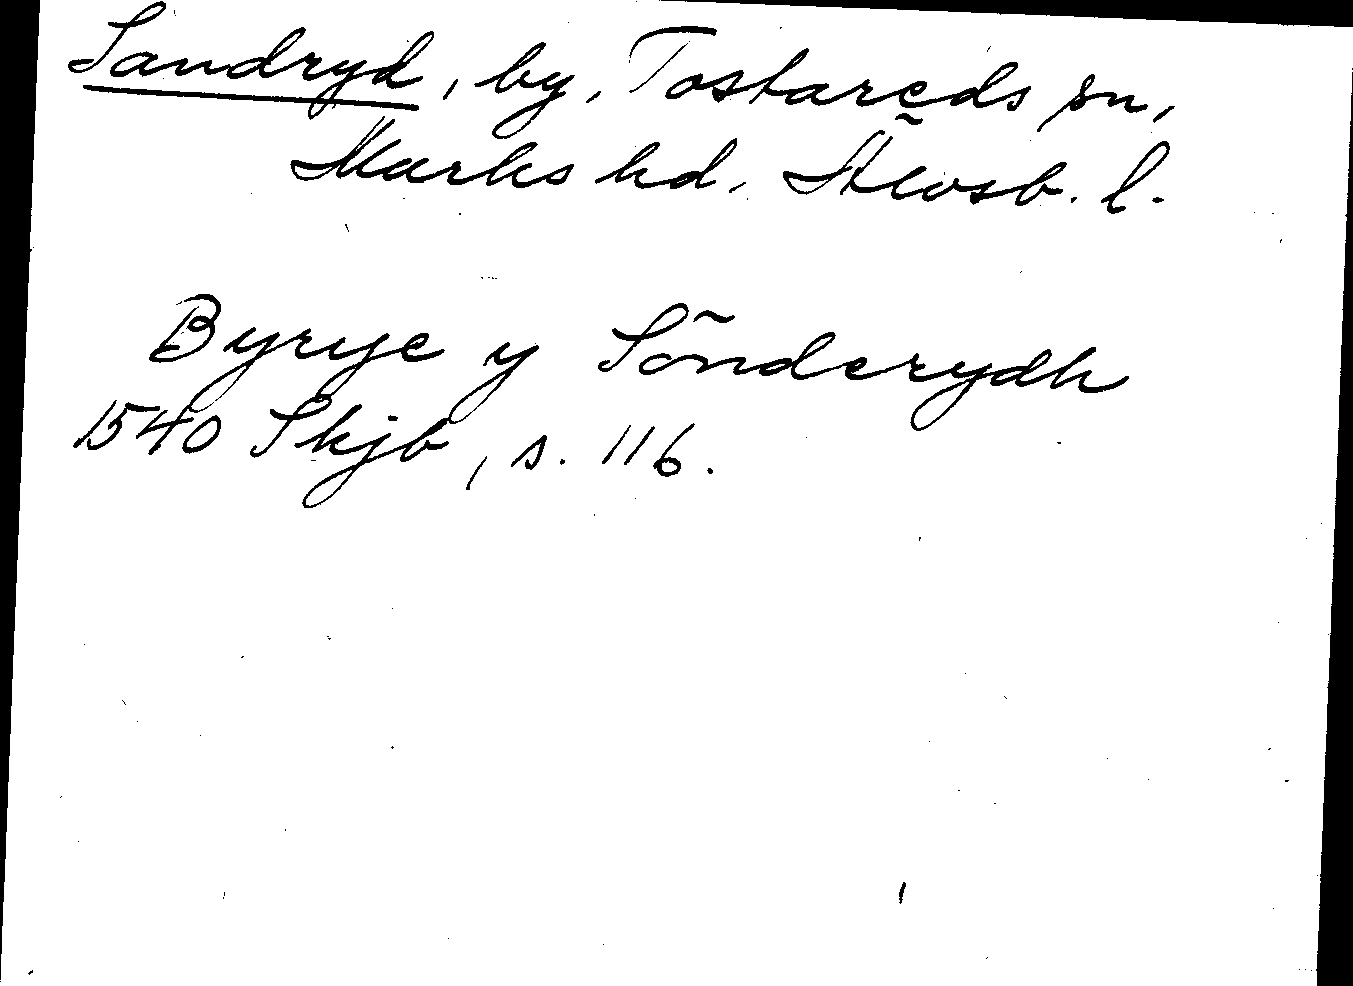 Sandryd, by, Tostareds sn,
Marks hd. Älvsb. l.
Byrye y Sönderydh
1540 Skjb, s. 116.